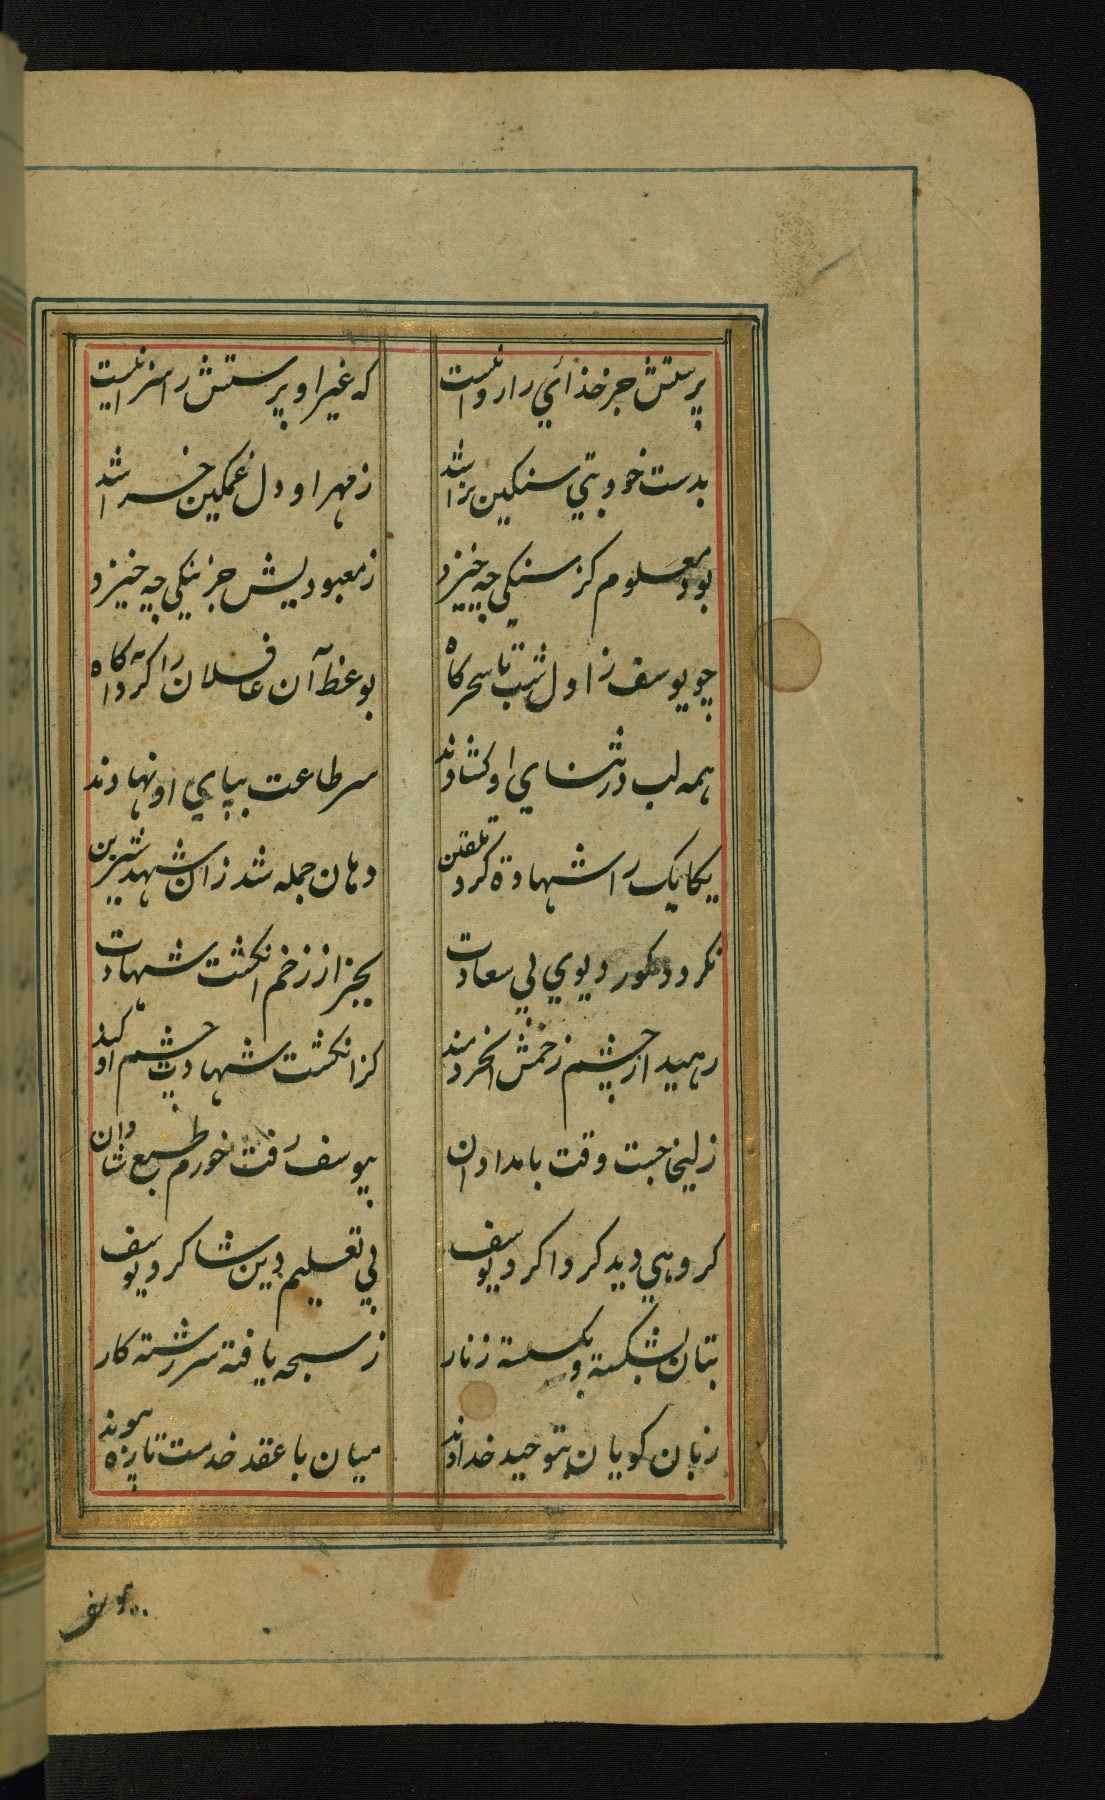 پرستش جز خدائي را روا نيست
که غير او پرستش را سزا نيست
بدست خود بتي سنکين تراشد
ز مهر او دل غمکين خراشد
بود معلوم کز سنکي چه خيزد
ز معبوديش جز ننکي چه خيزد
چو يوسف ز اول شب تا سحرکاه
بوعظ آن غافلان را کرد آکاه
همه لب در ثناي او کشادند
سر طاعت بپاي او نهادند
يکايک را شهادة کرد تلقين
دهان جمله شد زان شهد شيرين
نکردد کور ديوي بي سعادت
بجز از زخم انکشت شهادت
رهيد از چشم زخمش آن خردمند
کز انکشت شهادت چشم او کند
زليخا جست وقت بامدادان
بيوسف رفت خورم طبع شادان
کروهي ديد کرداکرد يوسف
پي تعليم دين شاکرد يوسف
بتان بشکسته و بکسسته زنار
ز سبحه يافته سر رشته کار
زبان کويان بتوحيد خداوند
ميان با عقد خدمت تازه پيوند